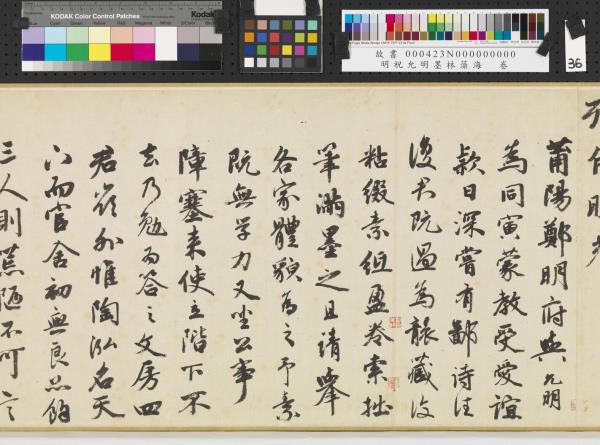 KODAK Color Control Patches
Kodak
故書 000423N000000000
明祝允明墨林藻海 卷
36
莆陽鄭明府與允明
為同寅蒙教受愛誼
款日深嘗有鄙詩往
復太既過為 藏復
粘綴素紙盈卷索拙
筆滿墨之且請舉
各家體貌為之予素
既無學力又坐公事
障塞來使立階下不
去乃勉而答之文房四
君
惟陶泓名天
下而官舍初無良品餘
三人則荒陋不可言